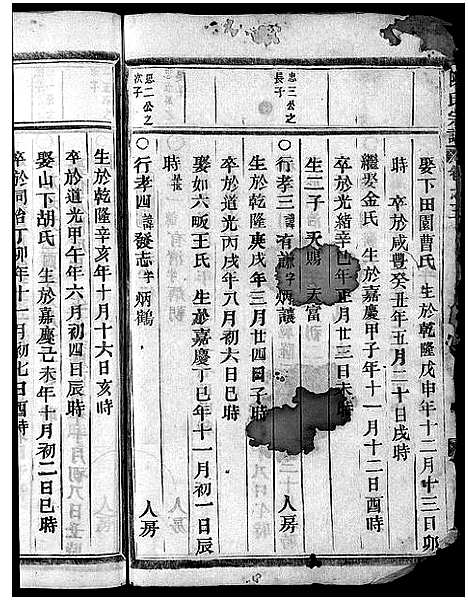 娶下田園曹氏 生於乾隆戊申年十二月十三日卯
時 卒於咸豐癸丑年五月二十日戌時
繼娶金氏 生於嘉慶甲子年十一月十二日酉時
卒於光緒辛巳年正月廿三日未時
生二子 天賜 天富
忠三公之
長子
〇行孝三諱有謙字炳讓 人房
生於乾隆庚戌年三月廿四日子時
卒於道光丙戌年八月初六日巳時
娶如六畈王氏 生於嘉慶丁巳年十一月初一日辰
時
忠二公之
次子
〇行孝四諱發志字炳鶴 人房
生於乾隆辛亥年十月十六日亥時
卒於道光甲午年六月初四日辰時
娶山下胡氏 生於嘉慶己未年十月初二日巳時
卒於同治丁卯年十一月初七日酉時